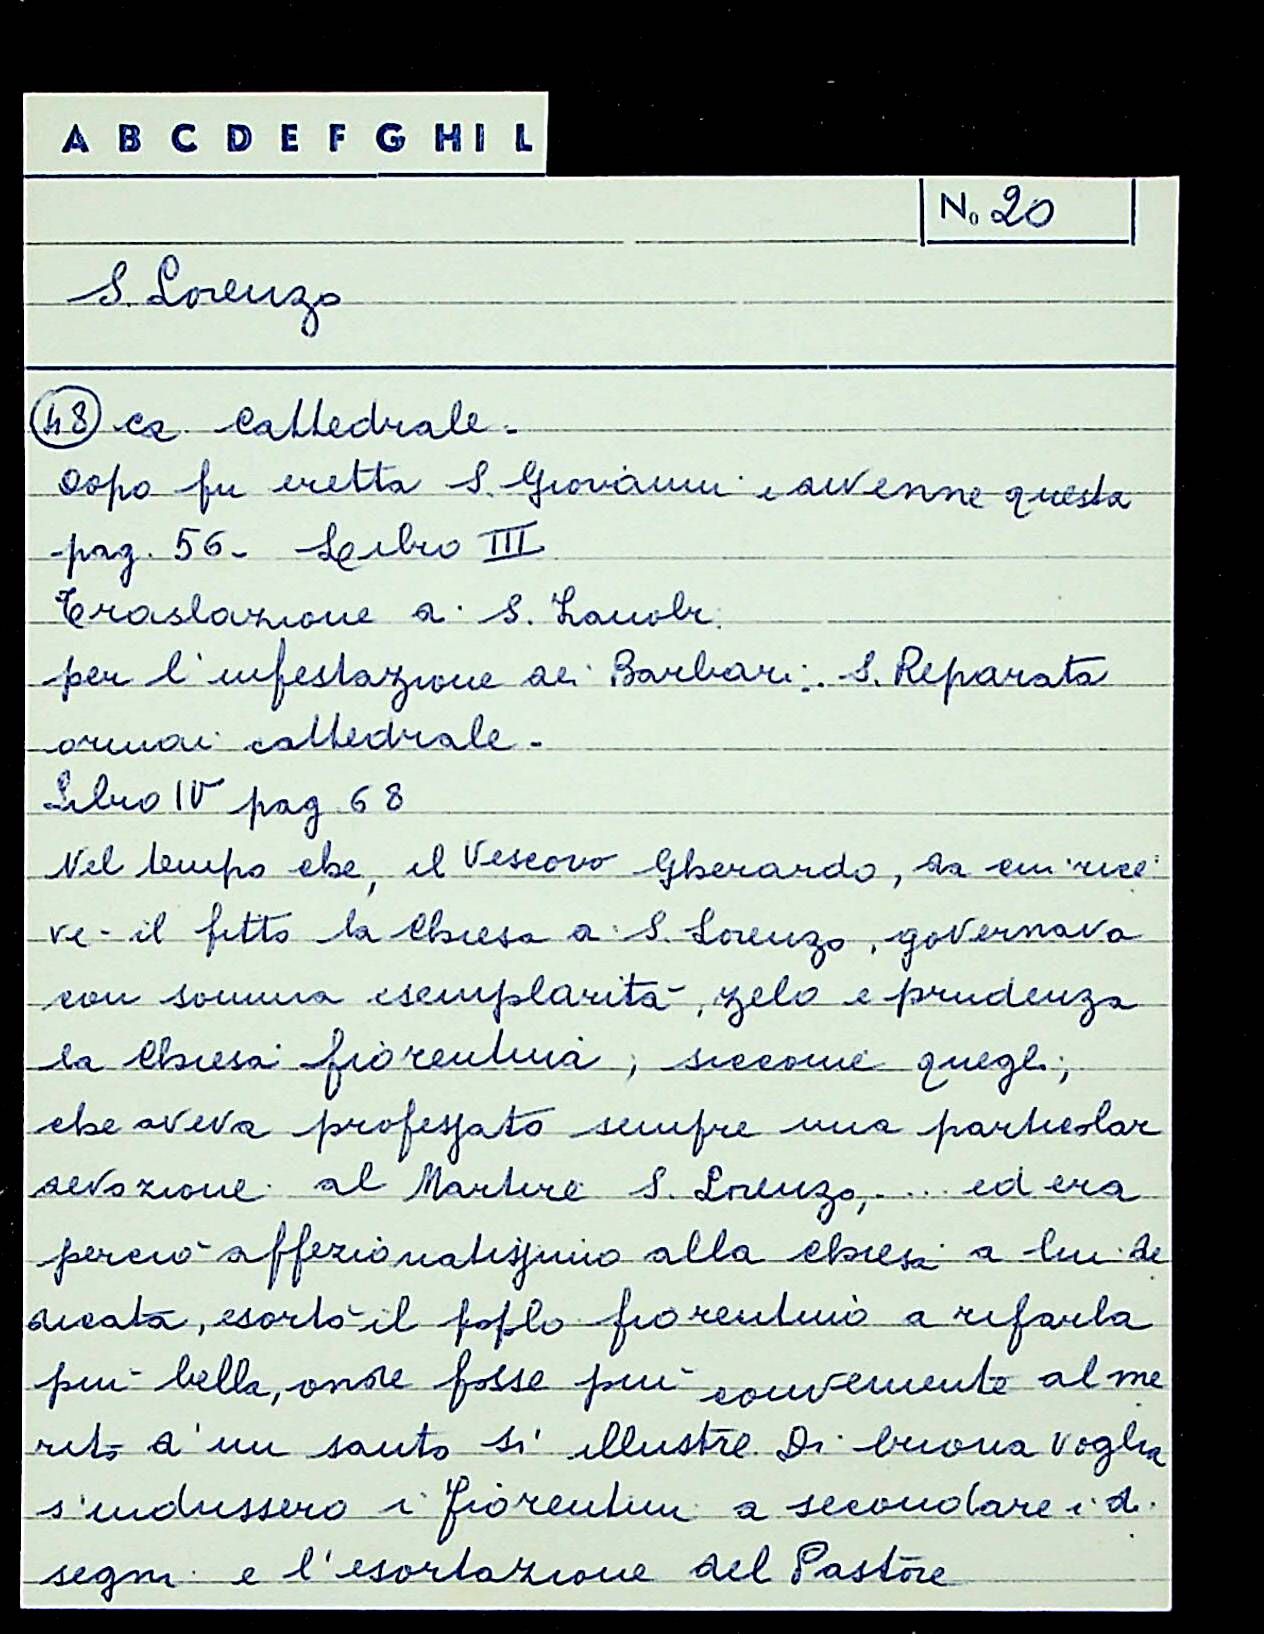 A B C D E F G H I L
No 20
S. Lorenzo
48 ca cattedrale.
Dopo fu eretta S. Giovanni e avvenne questa
pag. 56. Libro III
Traslazione di S. Zanobi
per l'infestazione dei Barbari. S. Reparata
ormai cattedrale.
Libro IV pag. 68
Nel tempo che, il Vescovo Gherardo, da cui rice
vè il fitto la Chiesa di S. Lorenzo, governava
con somma esemplarità, zelo e prudenza
la Chiesa fiorentina, siccome quegli,
che aveva professato sempre una particolar
devozione al Martire S. Lorenzo, .... ed era
perciò affezionatissimo alla chiesa a lui de
dicata, esortò il poplo fiorentino a rifarla
più bella, onde fosse più conveniente al me
rito d'un santo sì illustre. Di buona voglia
s'indussero i fiorentini a secondare i di
segni e l'esortazione del Pastore